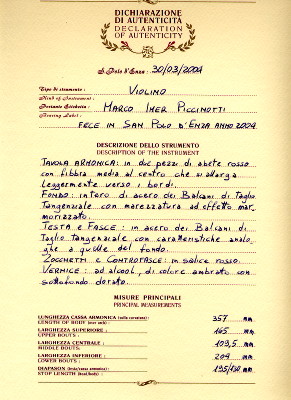 DICHIARAZIONE
DI AUTENTICITÀ
DECLARATION
OF AUTENTICITY
S. Polo d'Enza: 30/03/2004
Tipo di strumento: VIOLINO
Kind of Instrument:
Portante Etichetta: MARCO IMER PICCINOTTI
Bearing Label:
FECE IN SAN POLO D'ENZA ANNO 2004
DESCRIZIONE DELLO STRUMENTO
DESCRIPTION OF THE INSTRUMENT
TAVOLA ARMONICA: in due pezzi di abete rosso
con fibbra media al centro che si allarga
leggermente verso i bordi.
FONDO: intero di acero dei Balcani di taglio
Tangenziale con marezzatura ad effetto mar
morizzato.
TESTA e FASCE: in acero dei Balcani di
Taglio Tangenziale con caratteristiche analo
ghe a quelle del fondo.
ZOCCHETTI e CONTROFASCE: in salice rosso.
VERNICE: ad alcool, di colore ambrato con
sottofondo dorato.
MISURE PRINCIPALI
PRINCIPAL MEASUREMENTS
LUNGHEZZA CASSA ARMONICA 357 mm.
LENGTH OF BODY
LARGHEZZA SUPERIORE: 165 mm.
UPPER BOUTS:
LARGHEZZA CENTRALE: 109,5 mm.
MIDDLE BOUTS:
LARGHEZZA INFERIORE: 204 mm.
LOWER BOUTS:
DIAPASON 195/130 mm.
STOP LENGTH